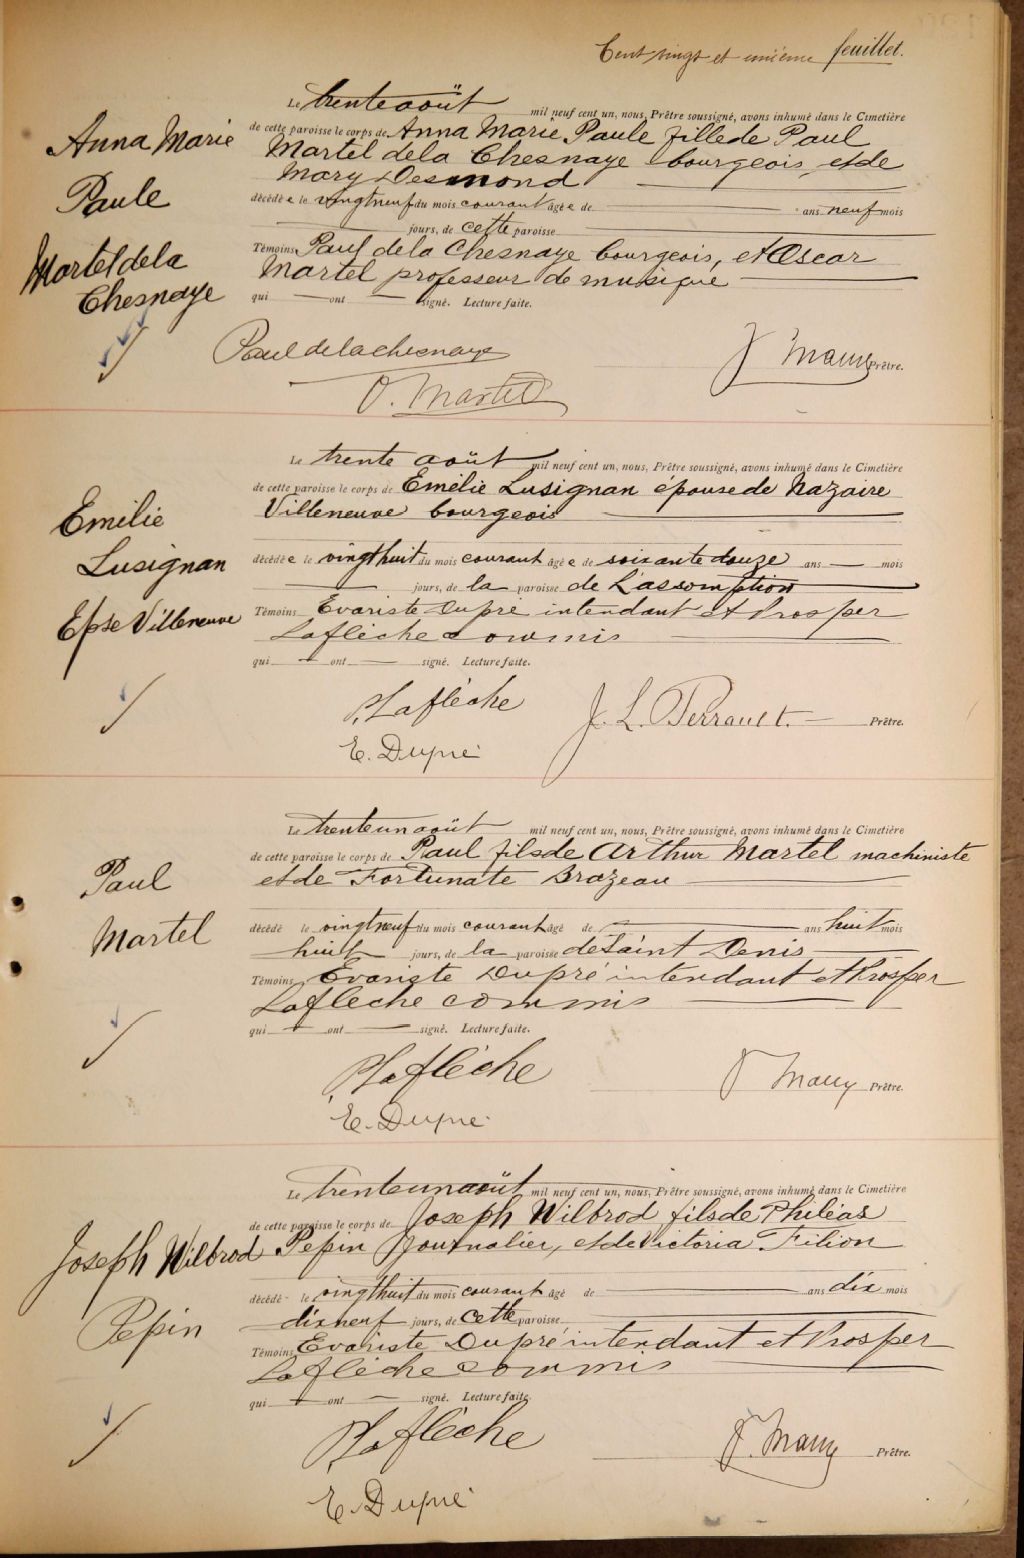 Cent vingt et unième feuillet.
Anna Marie
Paule
Martel de la
Chesnaye
Le trente août mil neuf cent un, nous, Prêtre soussigné, avons inhumé dans le Cimetière
de cette paroisse le corps de Anna Marie Paule fille de Paul
Martel de la Chesnaye bourgeois, et de
Mary Desmond
décédée le vingt neuf du mois courant âgée de ans neuf mois
jours, de cette paroisse
Témoins Paul de la Chesnaye bourgeois, et Oscar
Martel professeur de musique
qui ont signé. Lecture faite.
Paul de la Chesnaye
O. Martel
Prêtre.
Emélie
Lusignan
Epse Villeneuve
Le trente août mil neuf cent un, nous, Prêtre soussigné, avons inhumé dans le Cimetière
de cette paroisse le corps de Emélie Lusignan épouse de Nazaire
Villeneuve bourgeois
décédée le vingt huit du mois courant âgée de soixante douze ans mois
jours, de la paroisse de L'assomption
Témoins Evariste Dupré intendant et Prosper
Laflèche commis
qui ont signé. Lecture faite.
P. Laflèche
E. Dupré
J. L. Perrault. Prêtre.
Paul
Martel
Le trente un août mil neuf cent un, nous, Prêtre soussigné, avons inhumé dans le Cimetière
de cette paroisse le corps de Paul fils de Arthur Martel machiniste
et de Fortunate Brazeau
décédé le vingt neuf du mois courant âgé de ans huit mois
huit jours, de la paroisse de Saint Denis
Témoins Evariste Dupré intendant et Prosper
Laflèche commis
qui ont signé. Lecture faite.
P. Laflèche
E. Dupré
Prêtre.
Joseph Wilbrod
Pepin
Le trente un août mil neuf cent un, nous, Prêtre soussigné, avons inhumé dans le Cimetière
de cette paroisse le corps de Joseph Wilbrod fils de Philéas
Pepin Journalier, et de Victoria Filion
décédé le vingt huit du mois courant âgé de ans dix mois
dix neuf jours, de cette paroisse
Témoins Evariste Dupré intendant et Prosper
Laflèche commis
qui ont signé. Lecture faite.
P. Laflèche
E. Dupré
Prêtre.